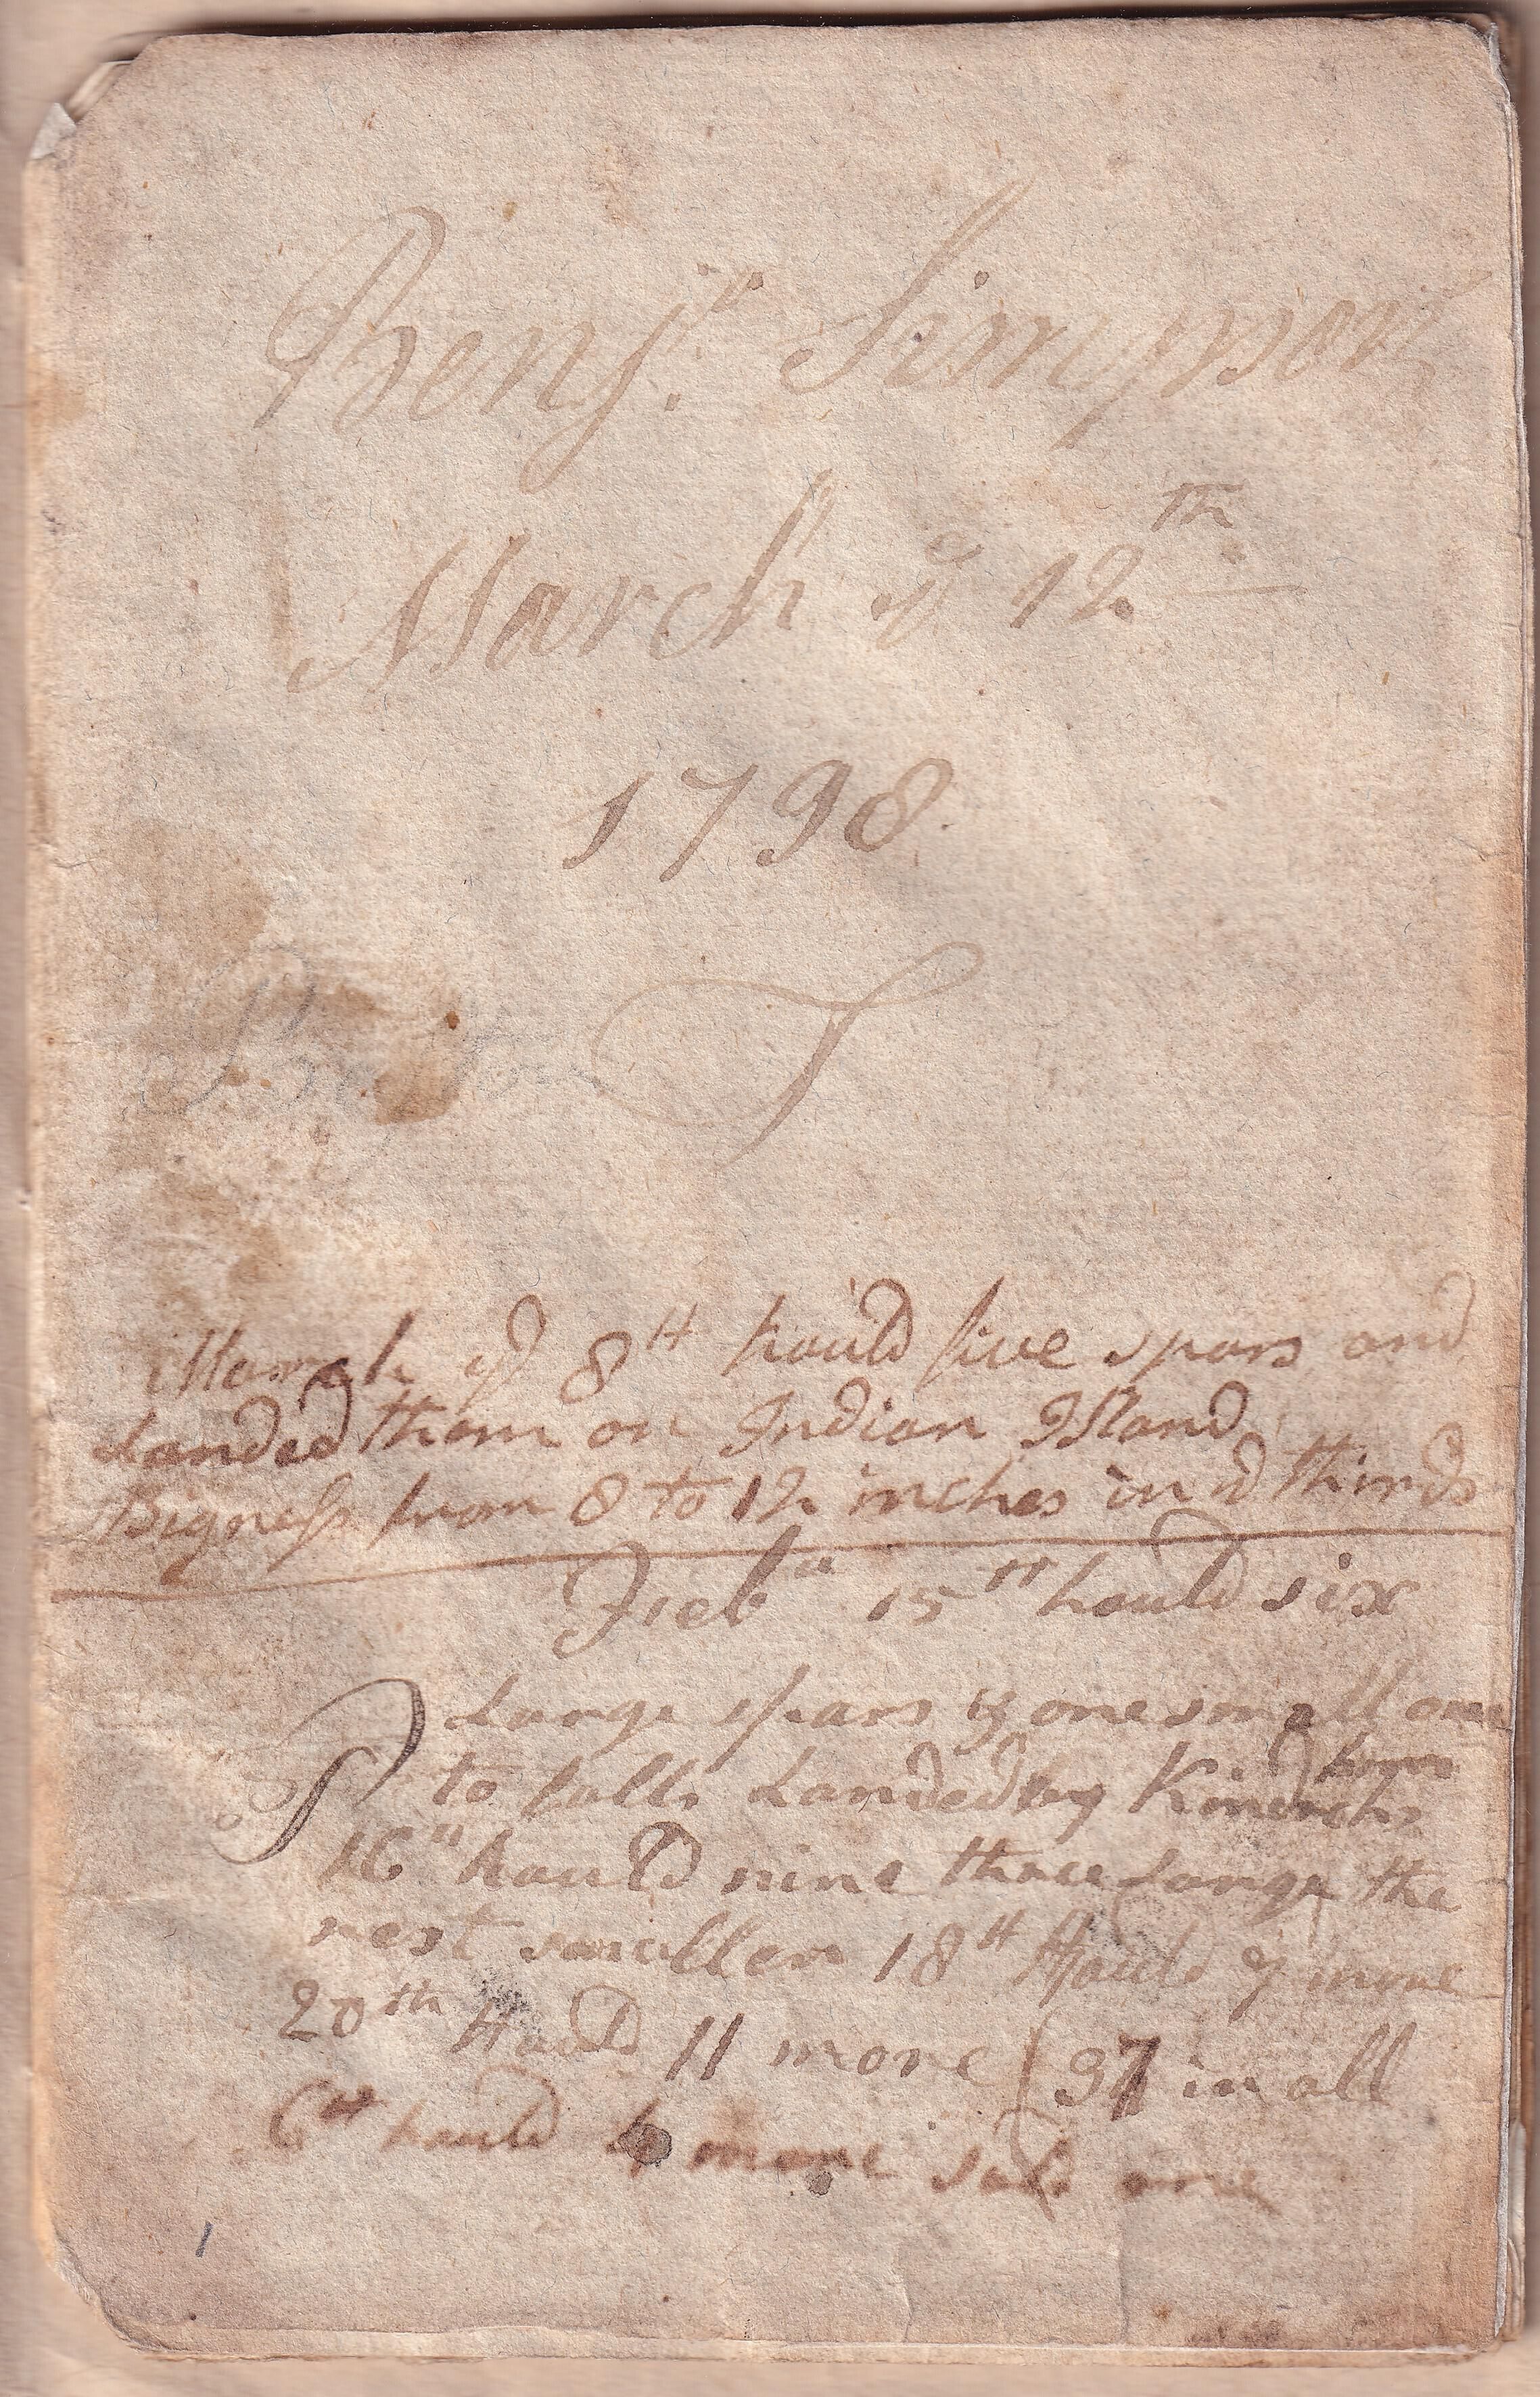 Benj.n Simpson
March ye 12th
1798
March ye 8th hauld five spars and
Landed them on Indian Island
Bigness from 8 to 12 inches in thirds
Feb.a 15th hauld six
Large spars & one small one
to falls Landed by
16th hauld nine three Large the
rest smaller 18th Hauld 9 more
20th Hauld 11 more 37 in all
6th hauld 4 more sold one
1